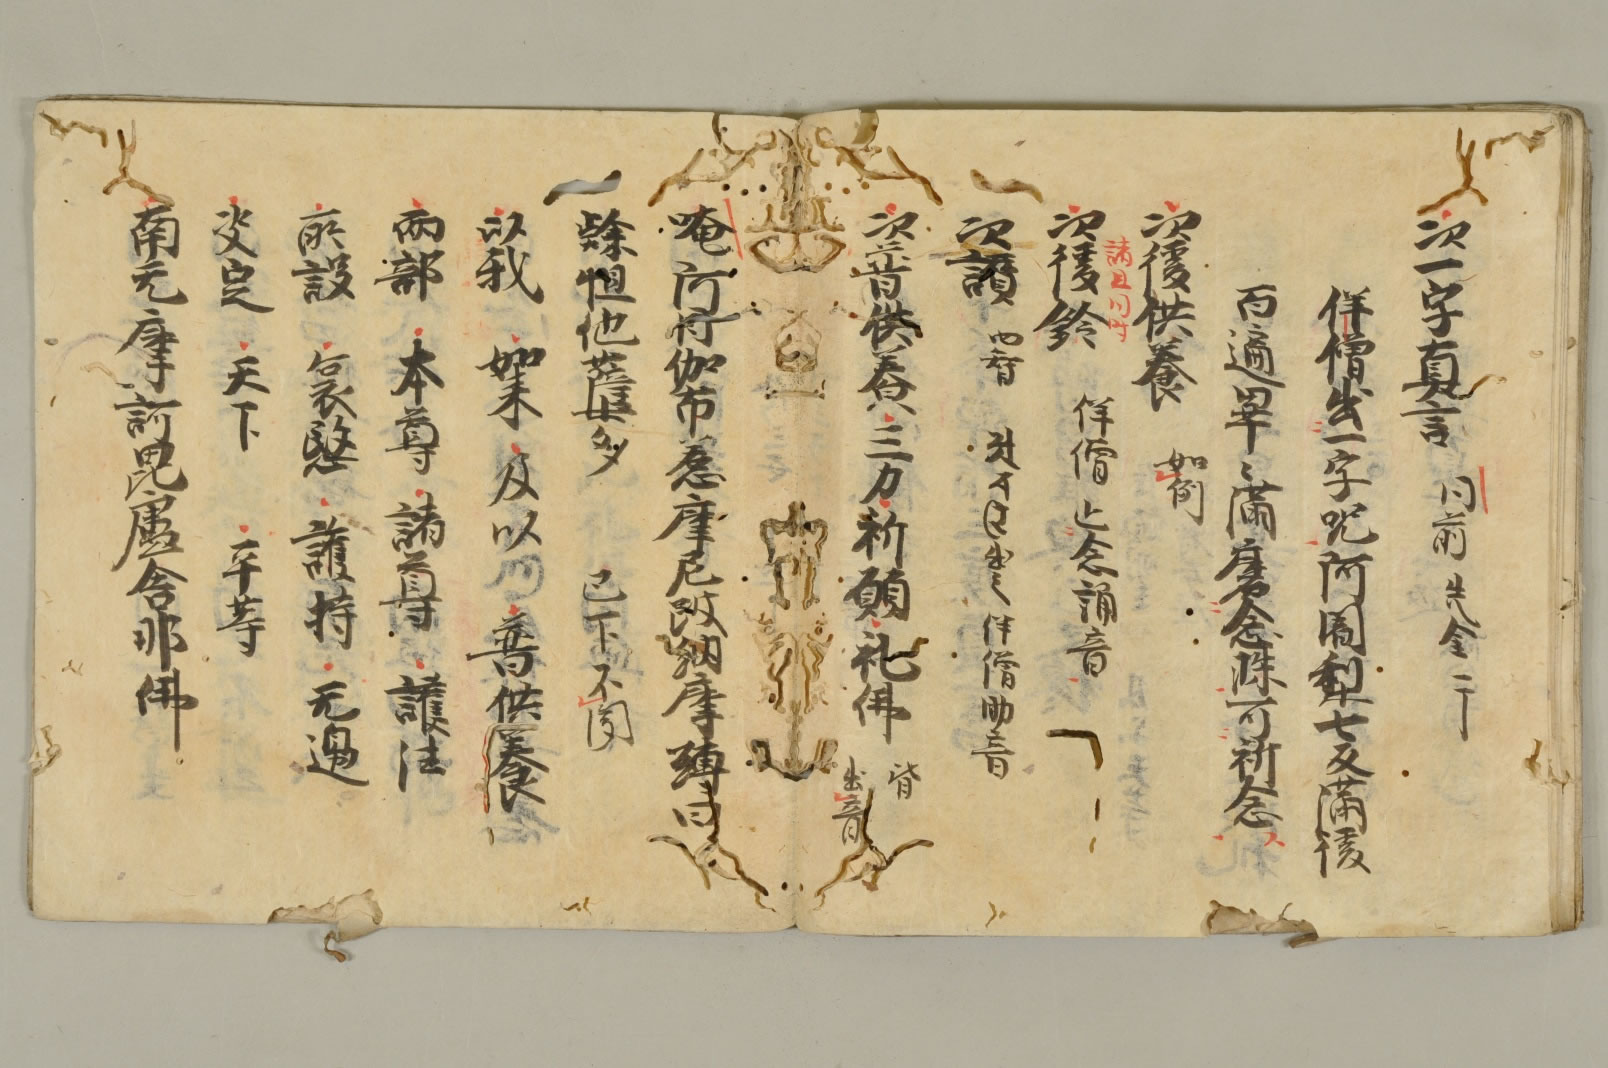 次一字真言 同前 先金一丁
伴僧出一字呪阿闍梨七反滿後
百遍畢〻滿廣念珠可祈念
次後供養 如例
次後鈴 伴僧止念誦音
次讃 四智 伴僧助音
次普供養 三力 祈願 礼佛 皆出音
唵阿謨伽布惹摩尼跛納摩嚩日
餘怛他蘖多 已下不図
以我 如来 及以 普供養
兩部 本尊 諸尊 護法
所設 哀愍 護持 无邊
决定 天下 平等
南无摩訶毘盧舎那佛